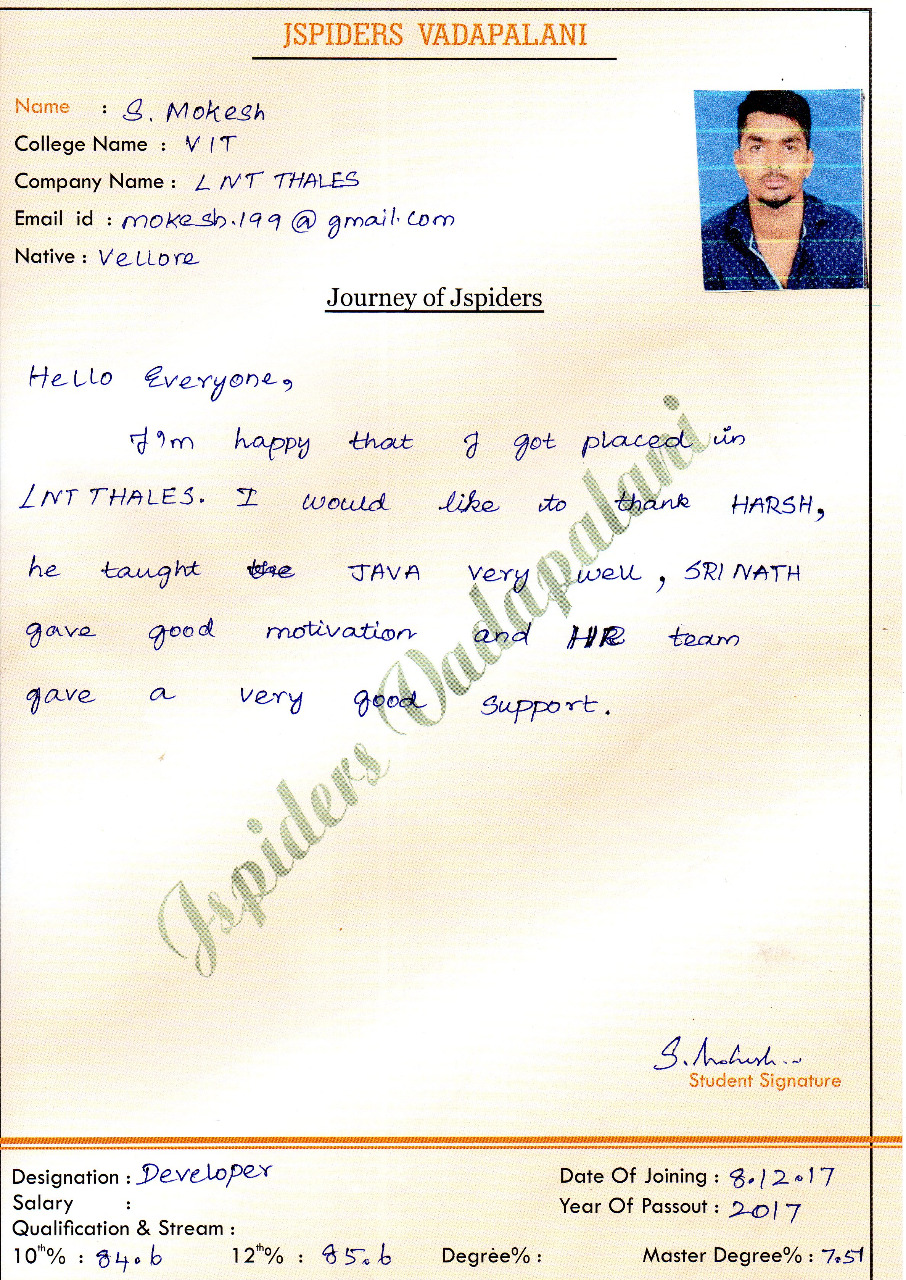 JSPIDERS VADAPALANI
Name : S. Mokesh
College Name : VIT
Company Name : LNT THALES
Email id : mokesh.199@gmail.com
Native : Vellore
Journey of Jspiders
Hello Everyone,
I'm happy that I got placed in
LNT THALES. I would like to thank HARSH,
he taught the JAVA very well, SRINATH
gave good motivation and HR team
gave a very good support.
Jspiders Vadapalani
S. Mokesh
Student Signature
Designation : Developer
Date Of Joining : 8.12.17
Salary :
Year Of Passout : 2017
Qualification & Stream :
10th% : 84.6 12th% : 85.6 Degree% : Master Degree% : 7.51